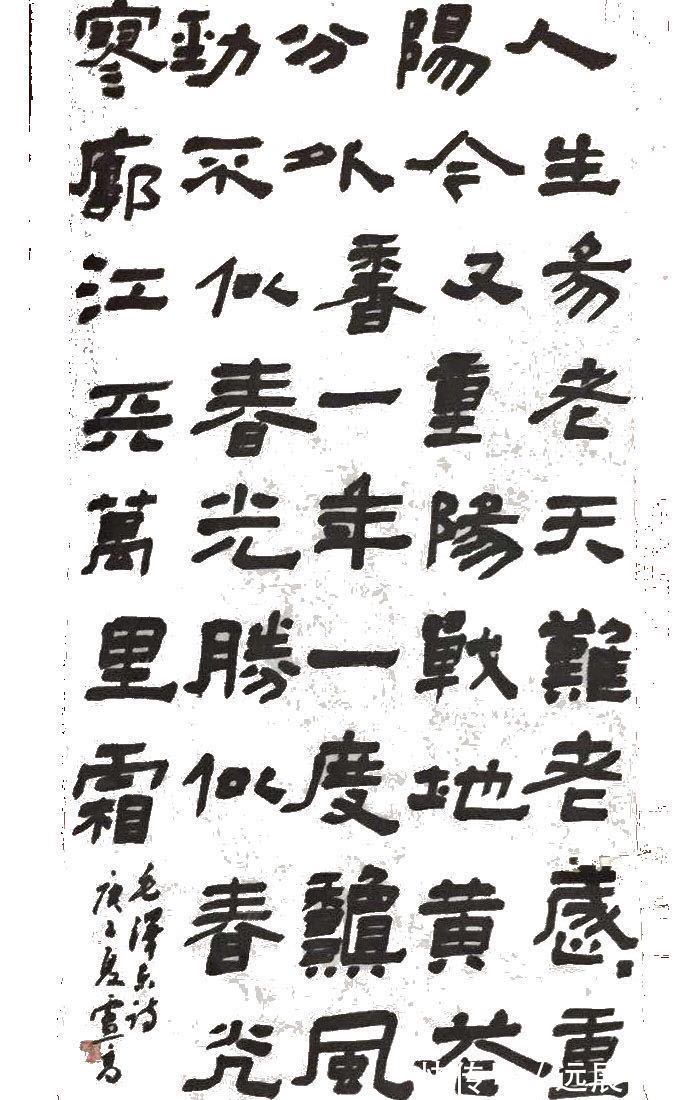 人生易老天難老歲〻重
陽今又重陽戰地黄花
分外香一年一度龝風
勁不似春光勝似春光
寥廓江兲萬里霜
毛澤东诗
庚子夏